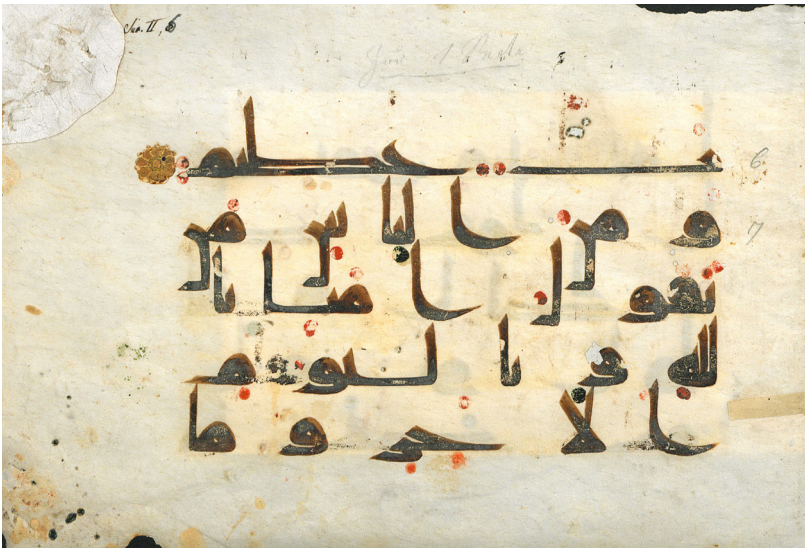 Sur. II, 6
ب عظيم 6
ومن الناس من 7
يقول امنا با
لله وباليوم
الاخر وما